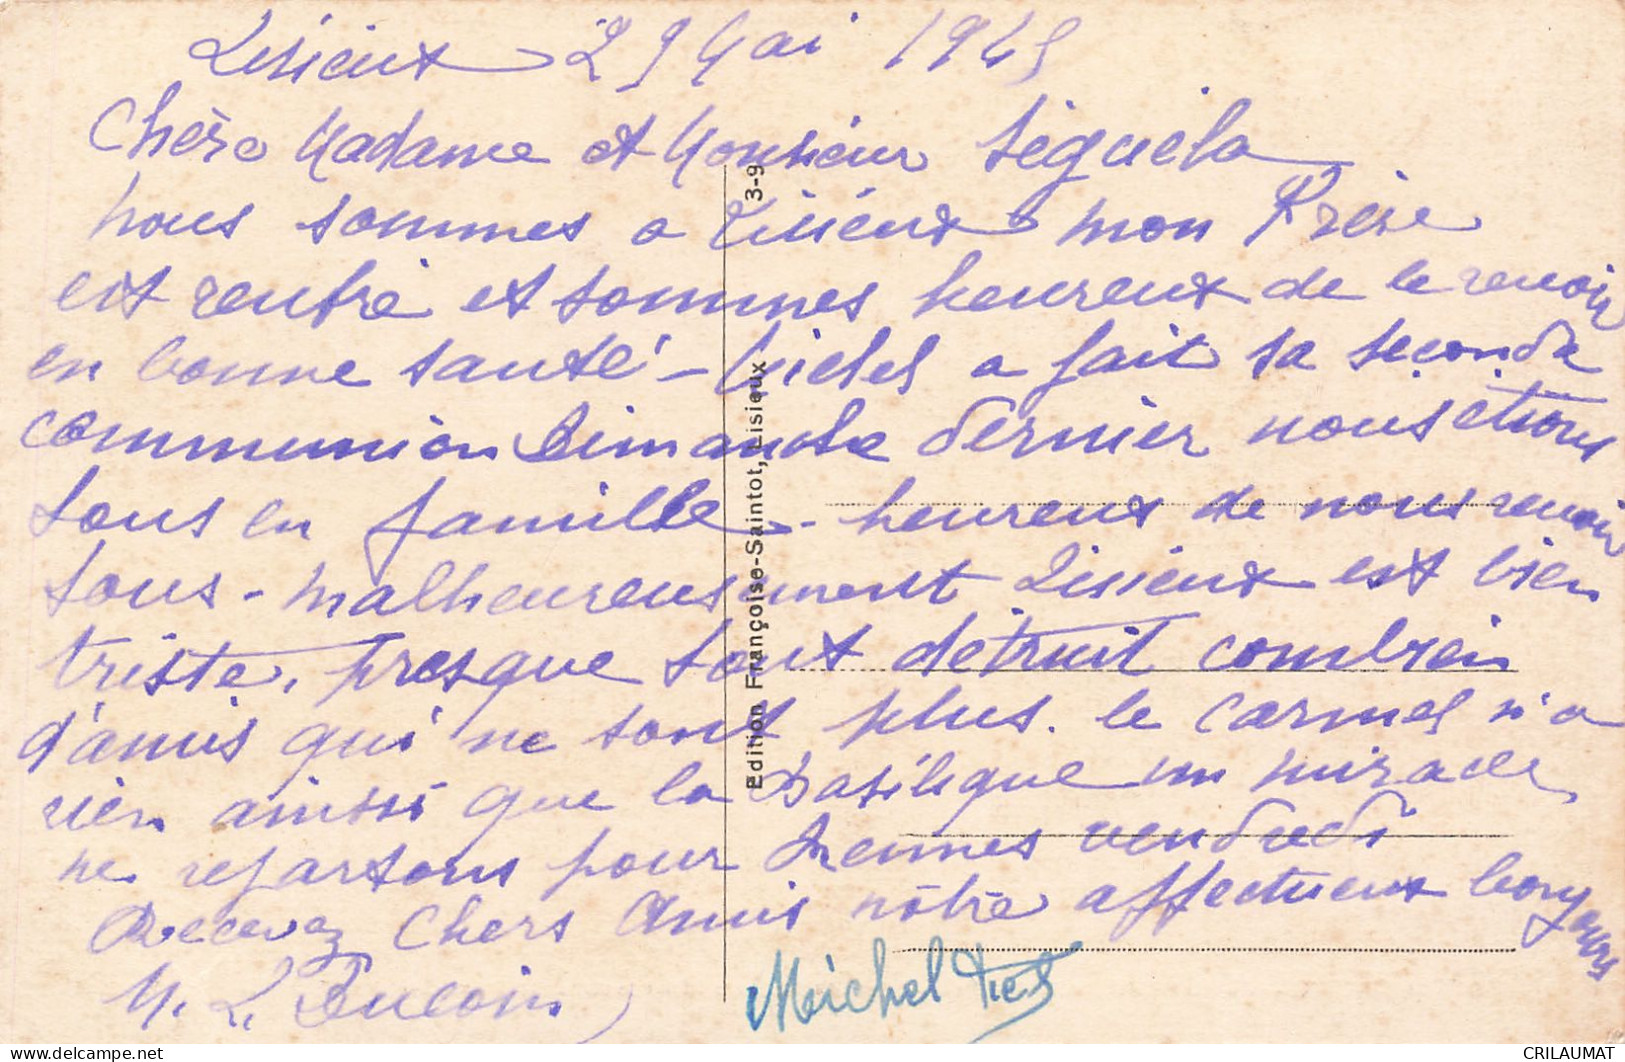 Lisieux 29 Mai 1945
Chère Madame et Monsieur Séguéla
nous sommes a Lisieux mon Frère
est rentré et sommes heureux de le revoir
en bonne santé - Michel a fait sa seconde
communion Dimanche dernier nous étions
tous en famille - heureux de nous revoir
tous - malheureusement Lisieux est bien
triste, presque tout détruit combien
d'amis qui ne sont plus. le Carmel n'a
rien ainsi que la Basilique un miracle
ne repartons pour Rennes vendredi
Recevez Chers Amis nôtre affectueux bonjour
M. L.
Michel
Edition Françoise-Saintot, Lisieux 3-9
delcampe.net
CRILAUMAT